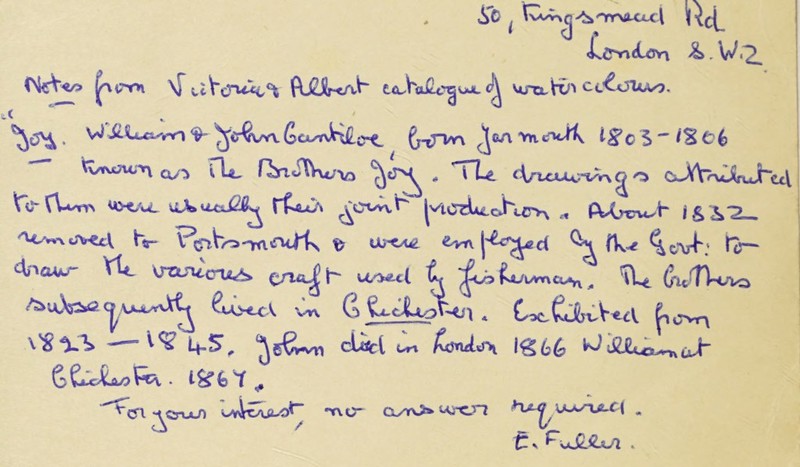 50, Kingsmead Rd
London S.W.2.
Notes from Victoria & Albert catalogue of watercolours.
"Joy. William & John Cantiloe, born Yarmouth 1803-1806
known as The Brothers Joy. The drawings attributed
to them were usually their joint production. About 1832
removed to Portsmouth & were employed by the Govt: to
draw the various craft used by fisherman. The brothers
subsequently lived in Chichester. Exhibited from
1823 – 1845. John died in London 1866 William at
Chichester. 1867.
For your interest, no answer required.
E. Fuller.